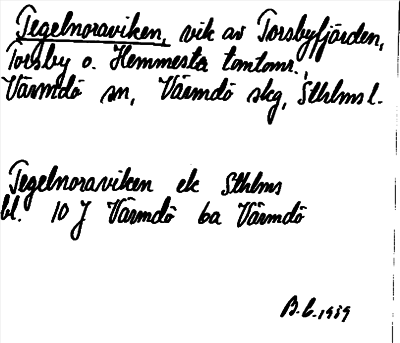 Tegelnoraviken, vik av Torsbyfjärden,
Torsby o. Hemmesta tomtomr.,
Värmdö sn, Värmdö skg, Sthlms l.
Tegelnoraviken ek Sthlms
bl. 10 J Värmdö 6a Värmdö
B.C. 1989